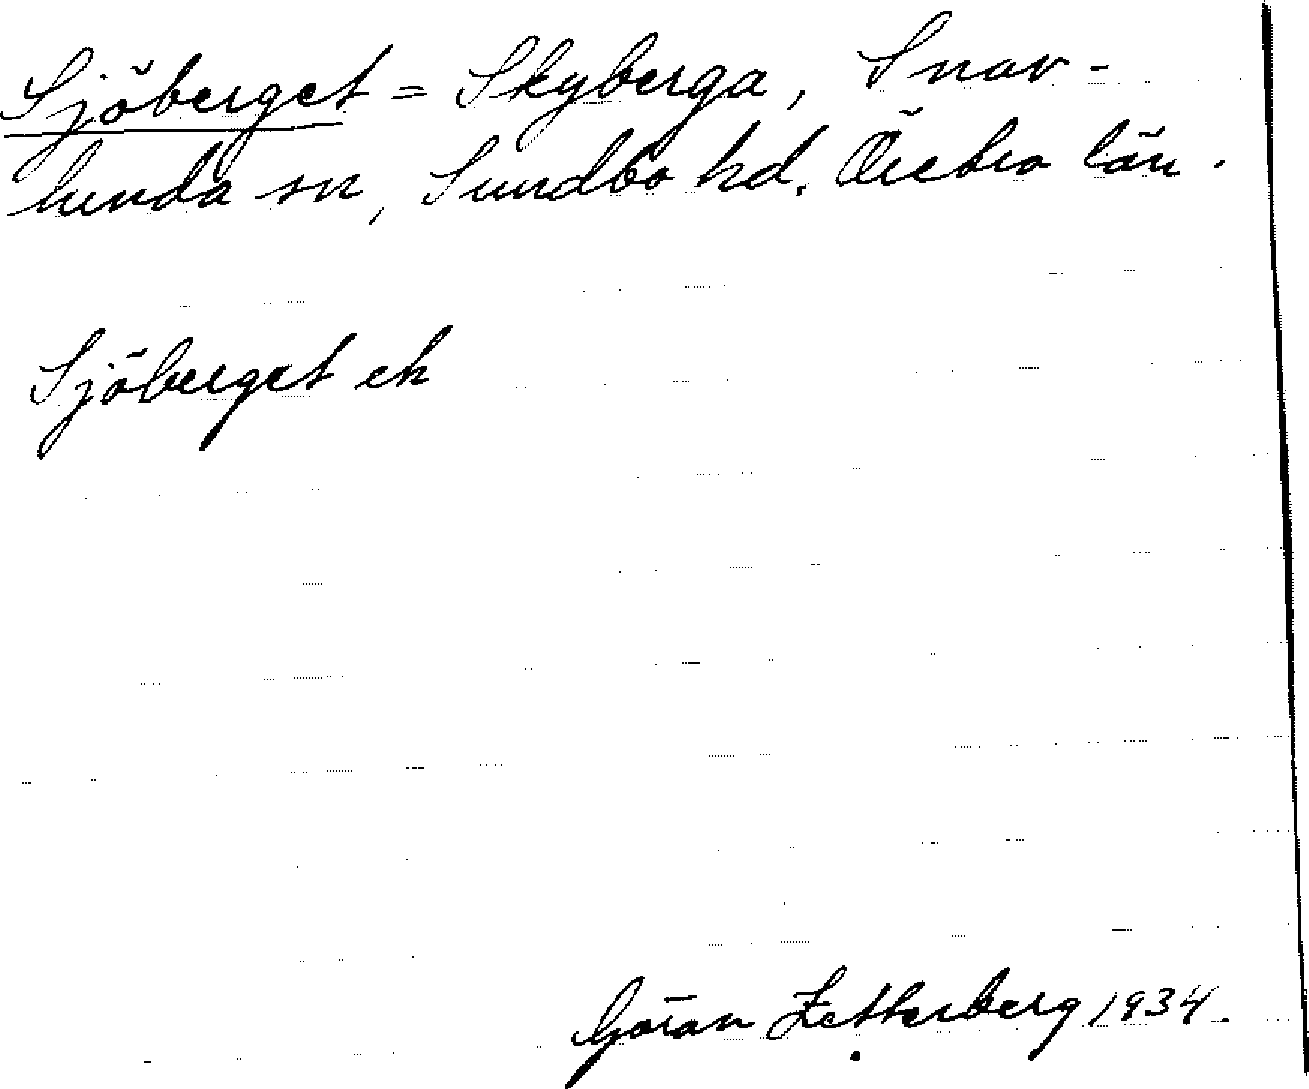 Sjöberget = Skyberga, Snav-
lunda sn, Sundbo hd. Örebro län.
Sjöberget ek
Göran Zetterberg 1934.